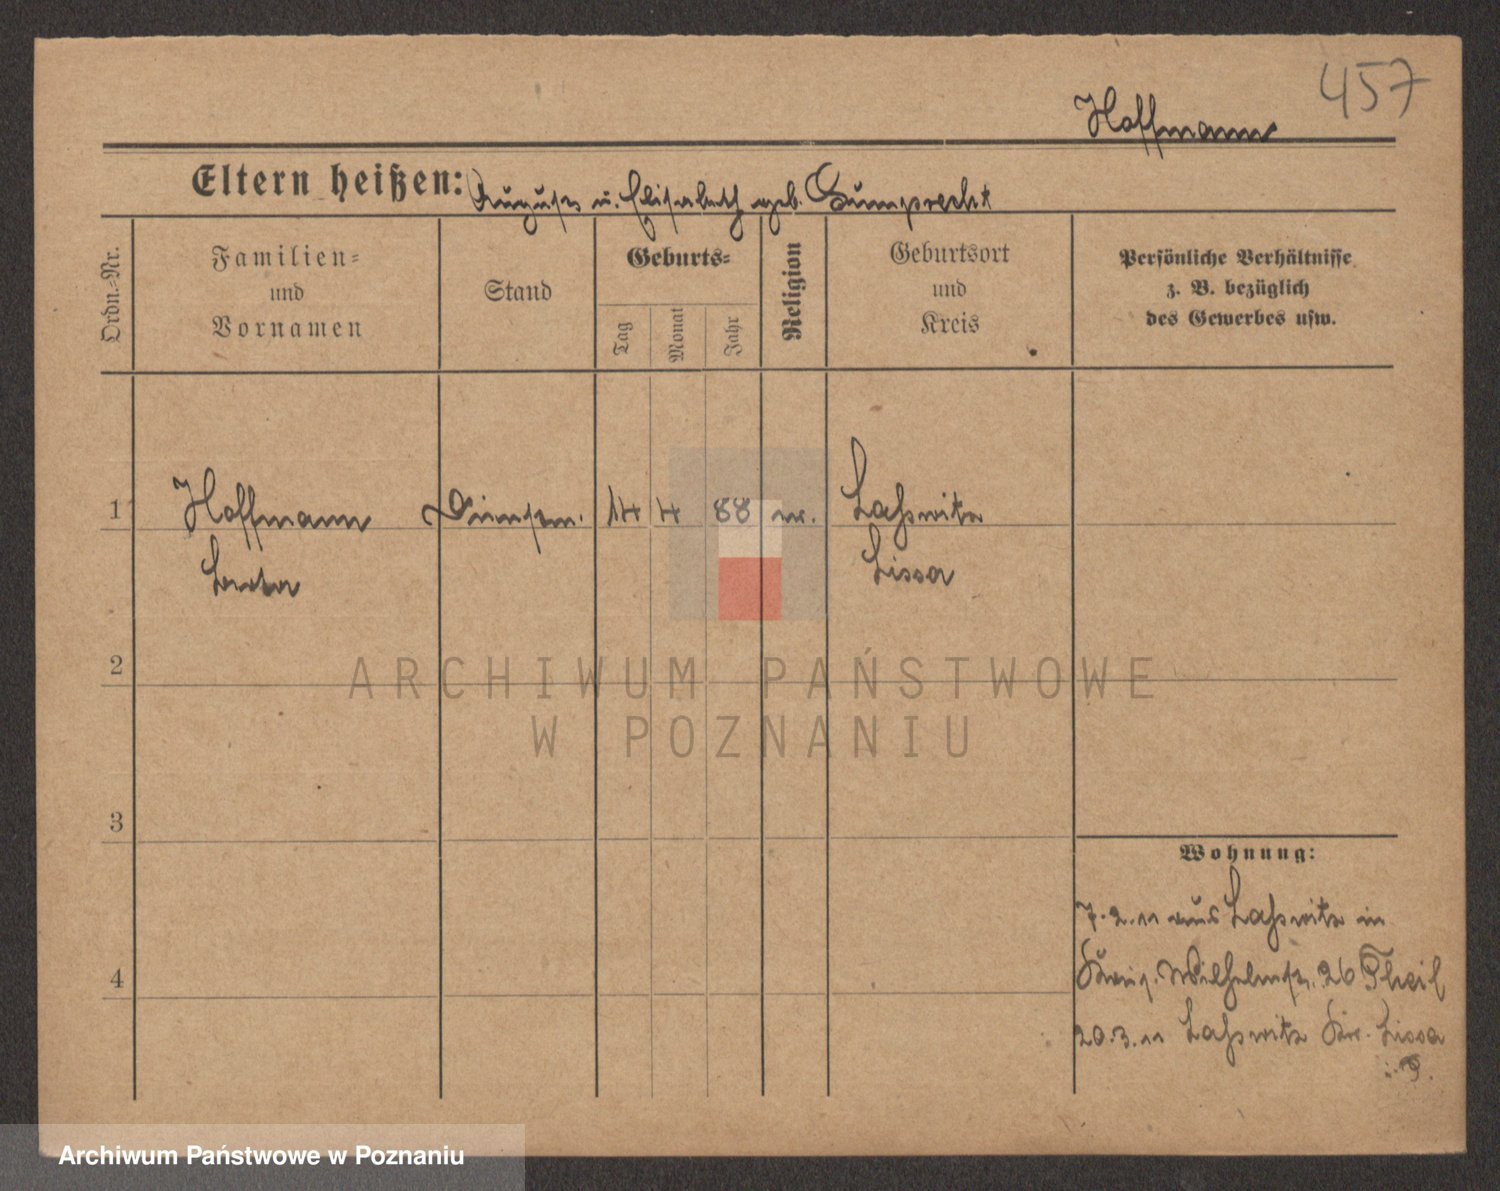 457
Hoffmann
Eltern heißen: August u. Elisabeth geb. Gumprecht
Ordn.-Nr.
Familien-
und
Vornamen
Stand
Geburts-
Tag
Monat
Jahr
Religion
Geburtsort
und
Kreis
Persönliche Verhältnisse
z. B. bezüglich
des Gewerbes usw.
1 Hoffmann Dienstm. 14 4 88 Laßwitz
Lissa
2
ARCHIWUM PAŃSTWOWE
W POZNANIU
3
Wohnung:
7.2.11 aus Laßwitz in
Wilhelmstr. 26 Theil
4
20.3.11 Laßwitz Kr. Lissa
i. P.
Archiwum Państwowe w Poznaniu